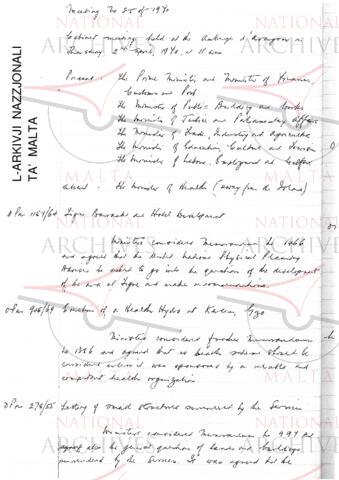 Meeting No 25 of 1970
Cabinet meeting held at the Auberge d'Aragon on
Thursday, 2nd April, 1970, at 11 am
Present : The Prime Minister and Minister of Finance,
Customs and Port
The Minister of Public Building and Works
The Minister of Justice and Parliamentary Affairs
The Minister of Trade, Industry and Agriculture
The Minister of Education, Culture and Tourism
The Minister of Labour, Employment and Welfare
Absent : The Minister of Health (away from the Island)
L-ARKIVJI NAZZJONALI
TA' MALTA
Barracks and Hotel Development
Ministers considered Memorandum No 1366
and agreed that the United Nations Physical Planning
Adviser be asked to go into the question of the development
of the area at and make recommendations.
Erection of a Health Hydro at Gozo
Ministers considered further Memorandum
No 1356 and agreed that no health scheme should be
considered unless it was sponsored by a reliable and
competent health organization
OPM 276/55 Letting of small structures surrendered by the Services
Ministers considered Memorandum No 997 and
also the general question of lands and buildings
surrendered by the Services. It was agreed that the
NATIONAL
ARCHIVES
MALTA